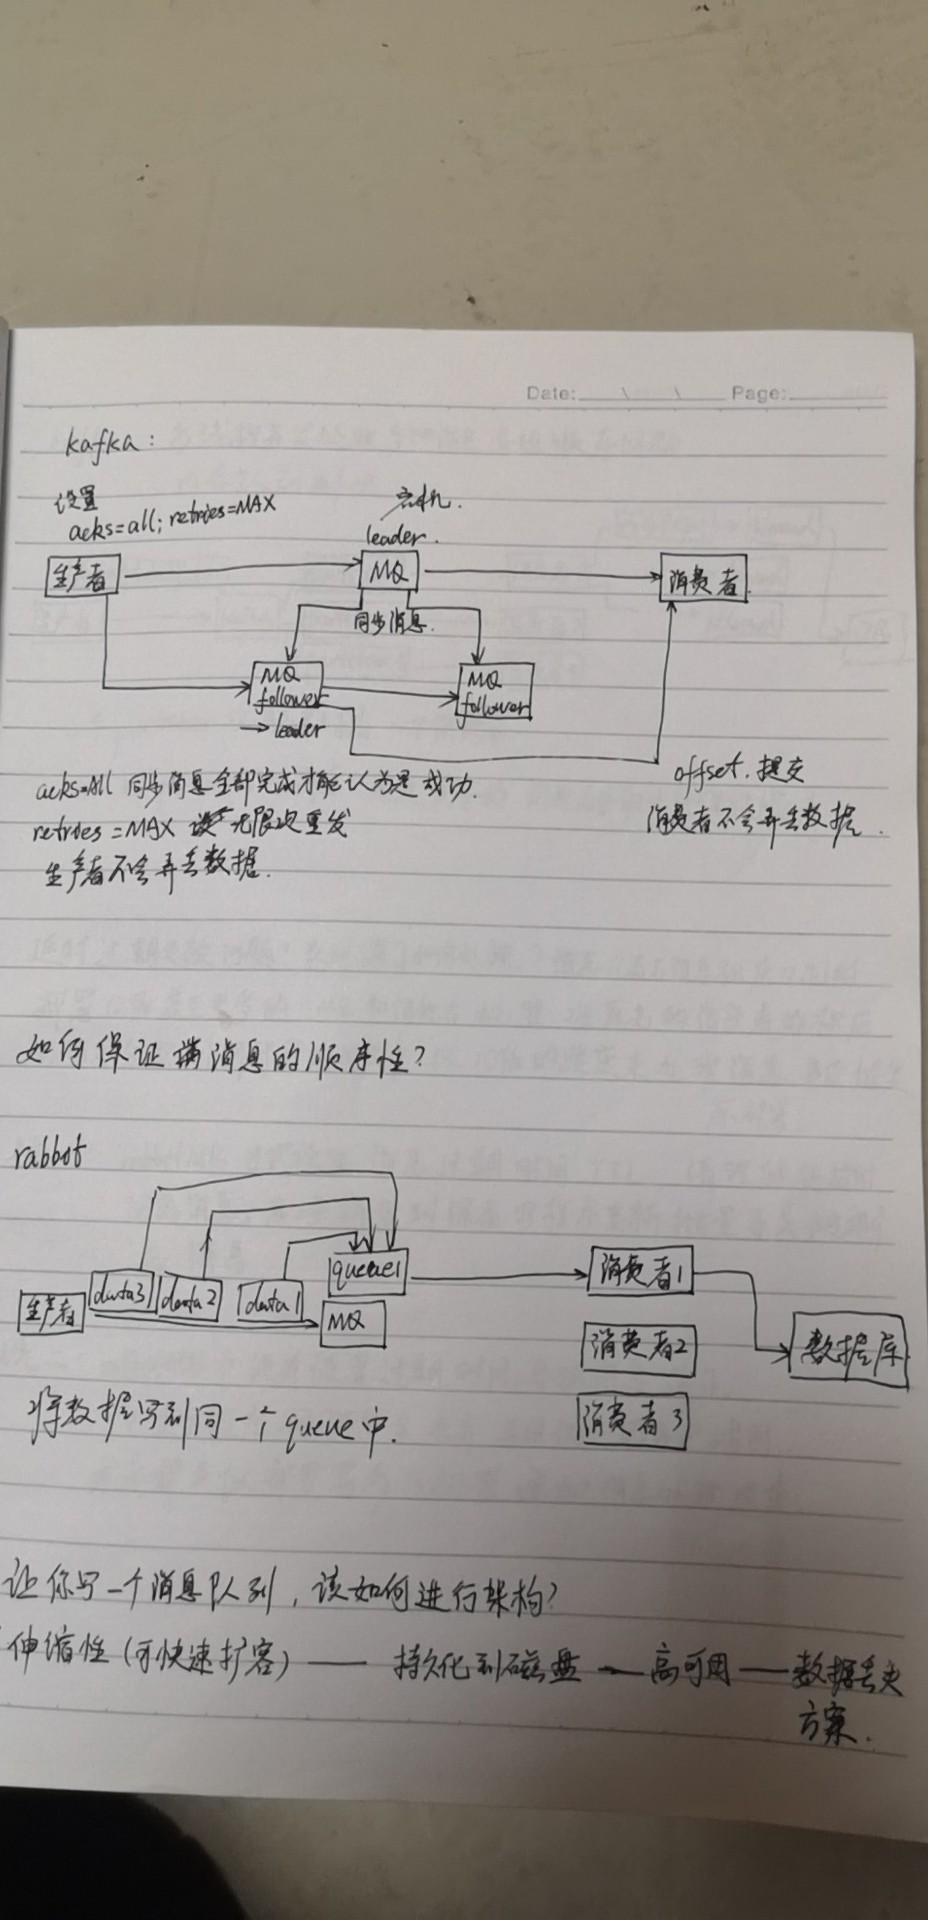 Date: Page:
kafka:
设置
acks=all; retries=MAX
宕机.
leader.
生产者
MQ
消费者
同步消息.
MQ
follower
→ leader
MQ
follower
acks=All 同步消息全部完成才能认为是成功.
retries=MAX 无限次重发
生产者不会弄丢数据.
offset.提交
消费者不会弄丢数据.
如何保证消息的顺序性?
rabbot
生产者
data3
data2
data1
queue1
MQ
消费者1
消费者2
消费者3
数据库
将数据写到同一个queue中.
让你写一个消息队列,该如何进行架构?
伸缩性(可快速扩容) —— 持久化到磁盘 — 高可用 —— 数据丢失
方案.